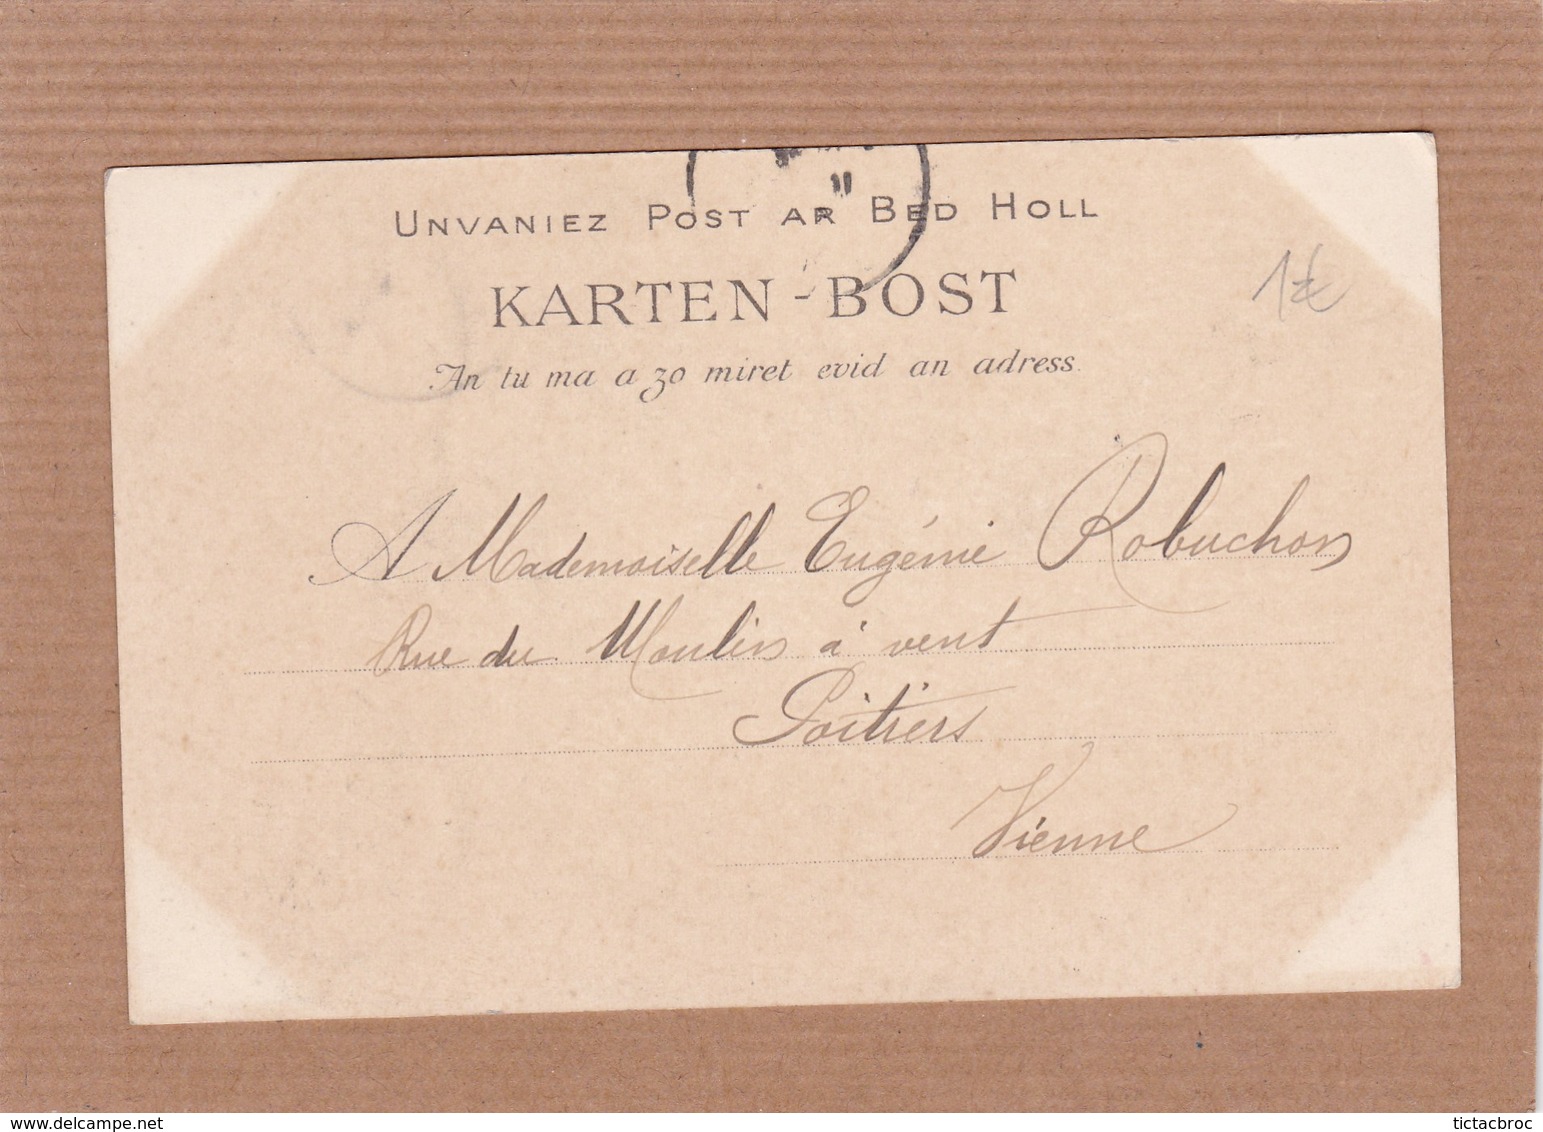 UNVANIEZ POST AR BED HOLL
KARTEN-BOST
An tu ma a zo miret evid an adress.
1€
A Mademoiselle Eugénie Robuchon
Rue du Moulin à vent
Poitiers
Vienne
delcampe.net
tictacbroc